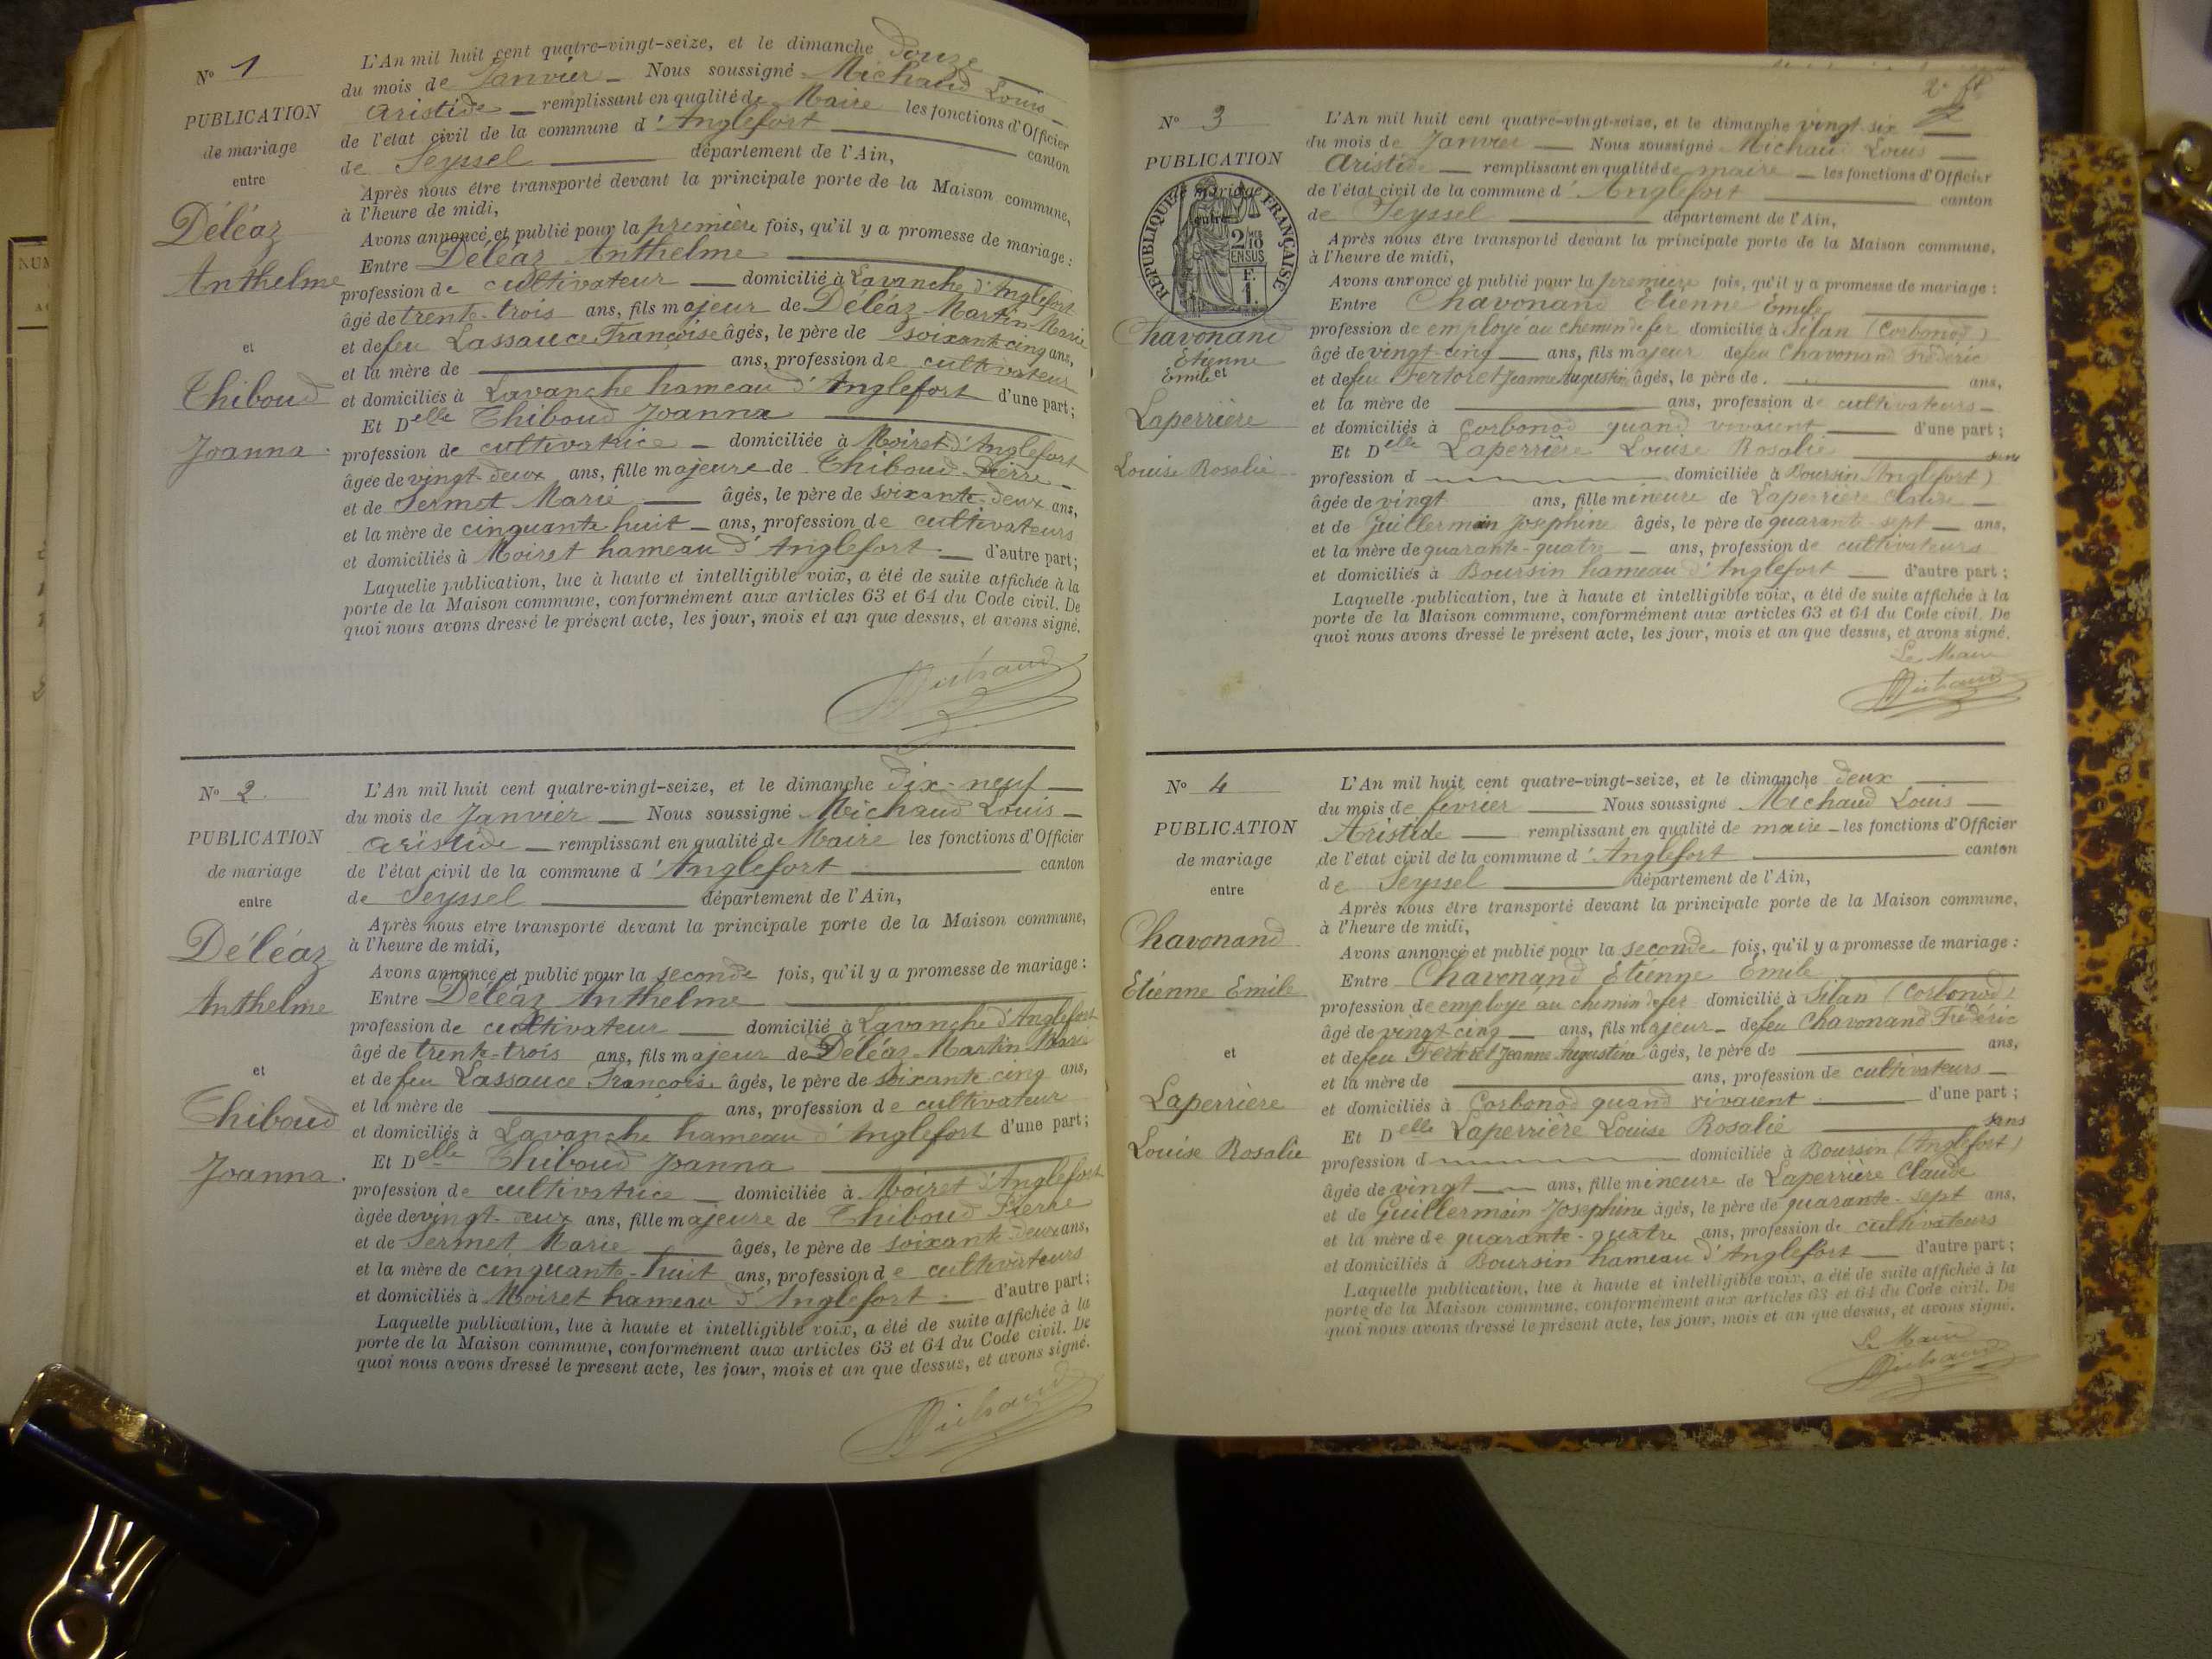 N° 1
PUBLICATION
de mariage
entre
Déléaz
Anthelme
et
Thiboud
Joanna
L'An mil huit cent quatre-vingt-seize, et le dimanche douze
du mois de Janvier Nous soussigné Michaud Louis
Aristide remplissant en qualité de Maire les fonctions d'Officier
de l'état civil de la commune d'Anglefort canton
de Seyssel département de l'Ain,
Après nous être transporté devant la principale porte de la Maison commune,
à l'heure de midi,
Avons annoncé et publié pour la première fois, qu'il y a promesse de mariage :
Entre Déléaz Anthelme
profession de cultivateur domicilié à Lavanche d'Anglefort
âgé de trente-trois ans, fils majeur de Déléaz Martin Marie
et de feu Lassauce Françoise âgés, le père de soixante cinq ans,
et la mère de ans, profession de cultivateur
et domiciliés à Lavanche hameau d'Anglefort d'une part ;
Et Delle Thiboud Joanna
profession de cultivatrice domiciliée à Moiret d'Anglefort
âgée de vingt-deux ans, fille majeure de Thiboud Pierre
et de Sermet Marie âgés, le père de soixante-deux ans,
et la mère de cinquante huit ans, profession de cultivateurs
et domiciliés à Moiret hameau d'Anglefort d'autre part ;
Laquelle publication, lue à haute et intelligible voix, a été de suite affichée à la
porte de la Maison commune, conformément aux articles 63 et 64 du Code civil. De
quoi nous avons dressé le présent acte, les jour, mois et an que dessus, et avons signé.
Michaud
N° 2
PUBLICATION
de mariage
entre
Déléaz
Anthelme
et
Thiboud
Joanna
L'An mil huit cent quatre-vingt-seize, et le dimanche dix-neuf
du mois de Janvier Nous soussigné Michaud Louis
Aristide remplissant en qualité de Maire les fonctions d'Officier
de l'état civil de la commune d'Anglefort canton
de Seyssel département de l'Ain,
Après nous etre transporté devant la principale porte de la Maison commune,
à l'heure de midi,
Avons annoncé et publié pour la seconde fois, qu'il y a promesse de mariage :
Entre Déléaz Anthelme
profession de cultivateur domicilié à Lavanche d'Anglefort
âgé de trente-trois ans, fils majeur de Déléaz Martin Marie
et de feu Lassauce Françoise âgés, le père de soixante cinq ans,
et la mère de ans, profession de cultivateur
et domiciliés à Lavanche hameau d'Anglefort d'une part ;
Et Delle Thiboud Joanna
profession de cultivatrice domiciliée à Moiret d'Anglefort
âgée de vingt-deux ans, fille majeure de Thiboud Pierre
et de Sermet Marie âgés, le père de soixante-deux ans,
et la mère de cinquante-huit ans, profession de cultivateurs
et domiciliés à Moiret hameau d'Anglefort d'autre part ;
Laquelle publication, lue à haute et intelligible voix, a été de suite affichée à la
porte de la Maison commune, conformément aux articles 63 et 64 du Code civil. De
quoi nous avons dressé le présent acte, les jour, mois et an que dessus, et avons signé.
Michaud
N° 3
PUBLICATION
de mariage
entre
RÉPUBLIQUE FRANÇAISE
2/10 EN SUS
F. 1.
Chavonand
Etienne
Emile et
Laperrière
Louise Rosalie
L'An mil huit cent quatre-vingt-seize, et le dimanche vingt-six
du mois de Janvier Nous soussigné Michaud Louis
Aristide remplissant en qualité de maire les fonctions d'Officier
de l'état civil de la commune d'Anglefort canton
de Seyssel département de l'Ain,
Après nous être transporté devant la principale porte de la Maison commune,
à l'heure de midi,
Avons annoncé et publié pour la première fois, qu'il y a promesse de mariage :
Entre Chavonand Etienne Emile
profession de employé au chemin de fer domicilié à Silan (Corbonod)
âgé de vingt-cinq ans, fils majeur de feu Chavonand Frédéric
et de feu Fertoret Jeanne Augustine âgés, le père de ans,
et la mère de ans, profession de cultivateurs
et domiciliés à Corbonod quand vivaient d'une part ;
Et Delle Laperrière Louise Rosalie sans
profession d domiciliée à Boursin (Anglefort)
âgée de vingt ans, fille mineure de Laperrière Claude
et de Guillermain Josephine âgés, le père de quarante-sept ans,
et la mère de quarante-quatre ans, profession de cultivateurs
et domiciliés à Boursin hameau d'Anglefort d'autre part ;
Laquelle publication, lue à haute et intelligible voix, a été de suite affichée à la
porte de la Maison commune, conformément aux articles 63 et 64 du Code civil. De
quoi nous avons dressé le présent acte, les jour, mois et an que dessus, et avons signé.
Le Maire
Michaud
N° 4
PUBLICATION
de mariage
entre
Chavonand
Etienne Emile
et
Laperrière
Louise Rosalie
L'An mil huit cent quatre-vingt-seize, et le dimanche deux
du mois de février Nous soussigné Michaud Louis
Aristide remplissant en qualité de maire les fonctions d'Officier
de l'état civil de la commune d'Anglefort canton
de Seyssel département de l'Ain,
Après nous être transporté devant la principale porte de la Maison commune,
à l'heure de midi,
Avons annoncé et publié pour la seconde fois, qu'il y a promesse de mariage :
Entre Chavonand Etienne Emile
profession de employé au chemin de fer domicilié à Silan (Corbonod)
âgé de vingt cinq ans, fils majeur de feu Chavonand Frédéric
et de feu Fertoret Jeanne Augustine âgés, le père de ans,
et la mère de ans, profession de cultivateurs
et domiciliés à Corbonod quand vivaient d'une part ;
Et Delle Laperrière Louise Rosalie sans
profession d domiciliée à Boursin (Anglefort)
âgée de vingt ans, fille mineure de Laperrière Claude
et de Guillermain Josephine âgés, le père de quarante-sept ans,
et la mère de quarante-quatre ans, profession de cultivateurs
et domiciliés à Boursin hameau d'Anglefort d'autre part ;
Laquelle publication, lue à haute et intelligible voix, a été de suite affichée à la
porte de la Maison commune, conformément aux articles 63 et 64 du Code civil. De
quoi nous avons dressé le présent acte, les jour, mois et an que dessus, et avons signé.
Le Maire
Michaud